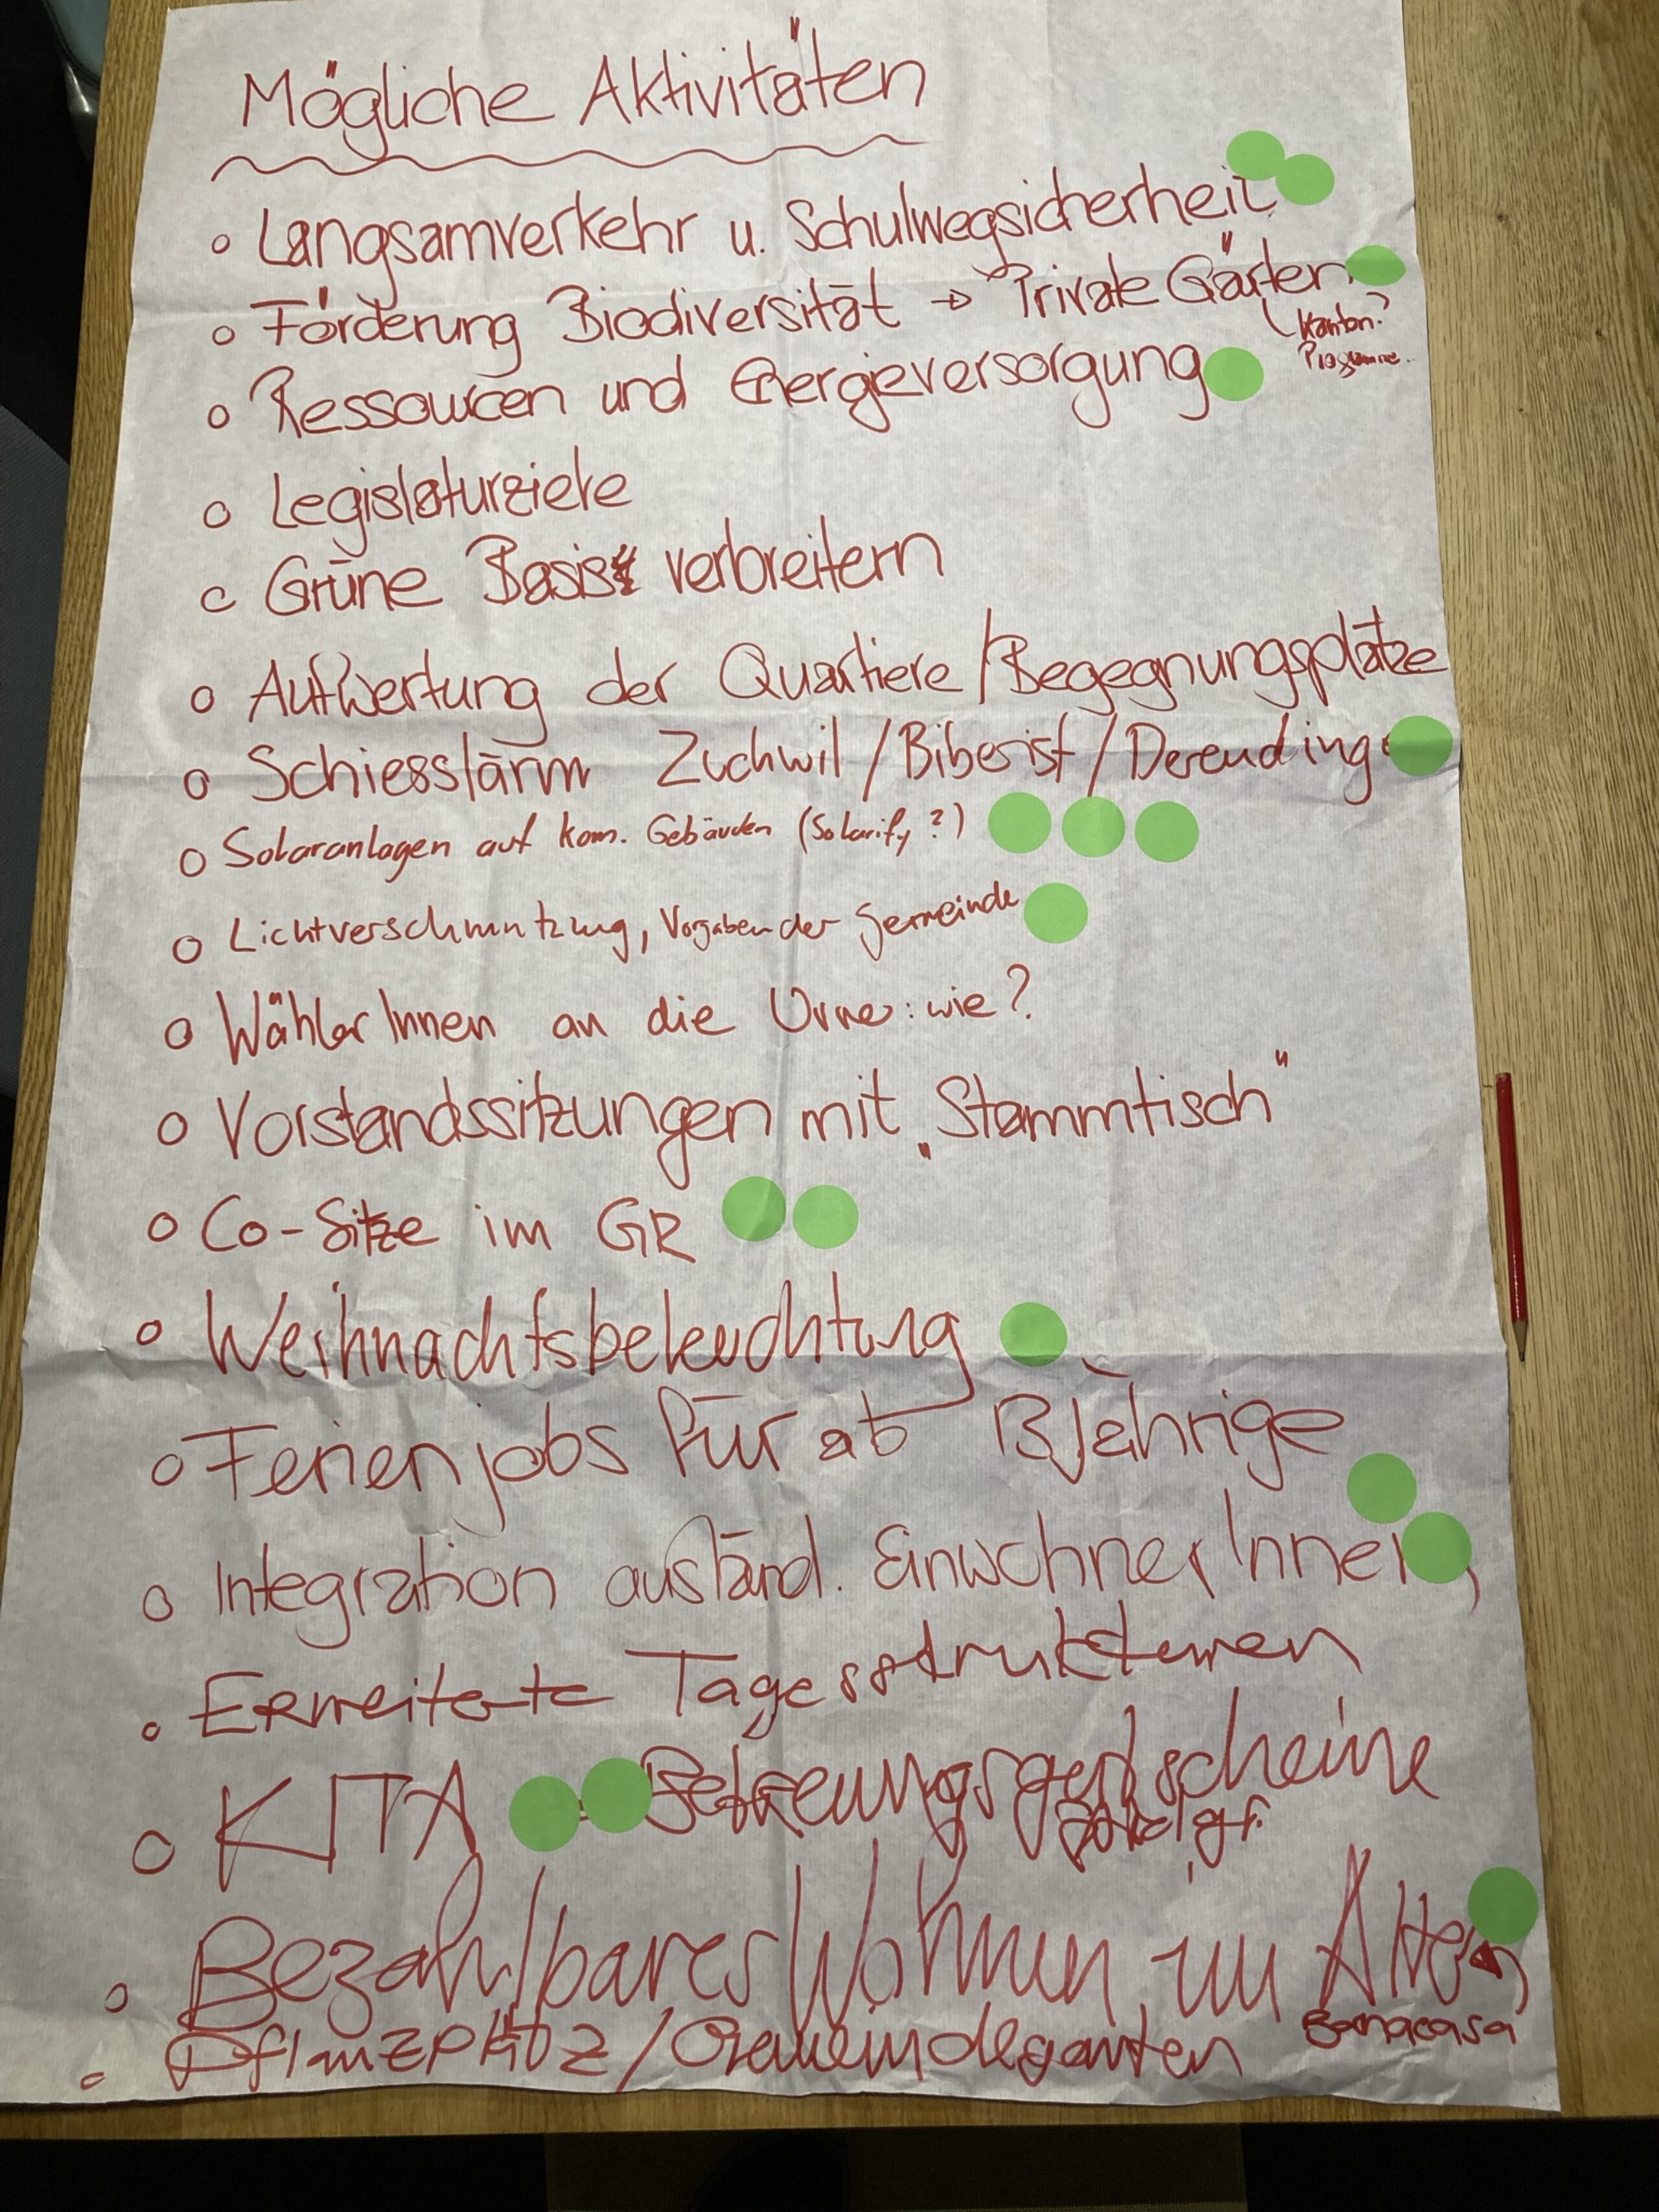 Mögliche Aktivitäten
o Langsamverkehr u. Schulwegsicherheit
o Förderung Biodiversität → Private Gärten
(Kanton?
Programme.
o Ressourcen und Energieversorgung
o Legislaturziele
o Grüne Basis verbreitern
o Aufwertung der Quartiere/Begegnungsplätze
o Schiesslärm Zuchwil/Biberist/Derending
o Solaranlagen auf kom. Gebäuden (Solarify?)
o Lichtverschmutzung, Vorgaben der Gemeinde
o WählerInnen an die Urne: wie?
o Vorstandssitzungen mit „Stammtisch"
o Co-Sitze im GR
o Weihnachtsbeleuchtung
o Ferienjobs für ab 13 Jährige
o Integration ausländ. EinwohnerInnen
o Erweiterte Tagesstrukturen
o KITA Betreuungsgutscheine
o Bezahlbares Wohnen im Alter
Bonacasa
o Pflanzplätz/Gemeindegarten